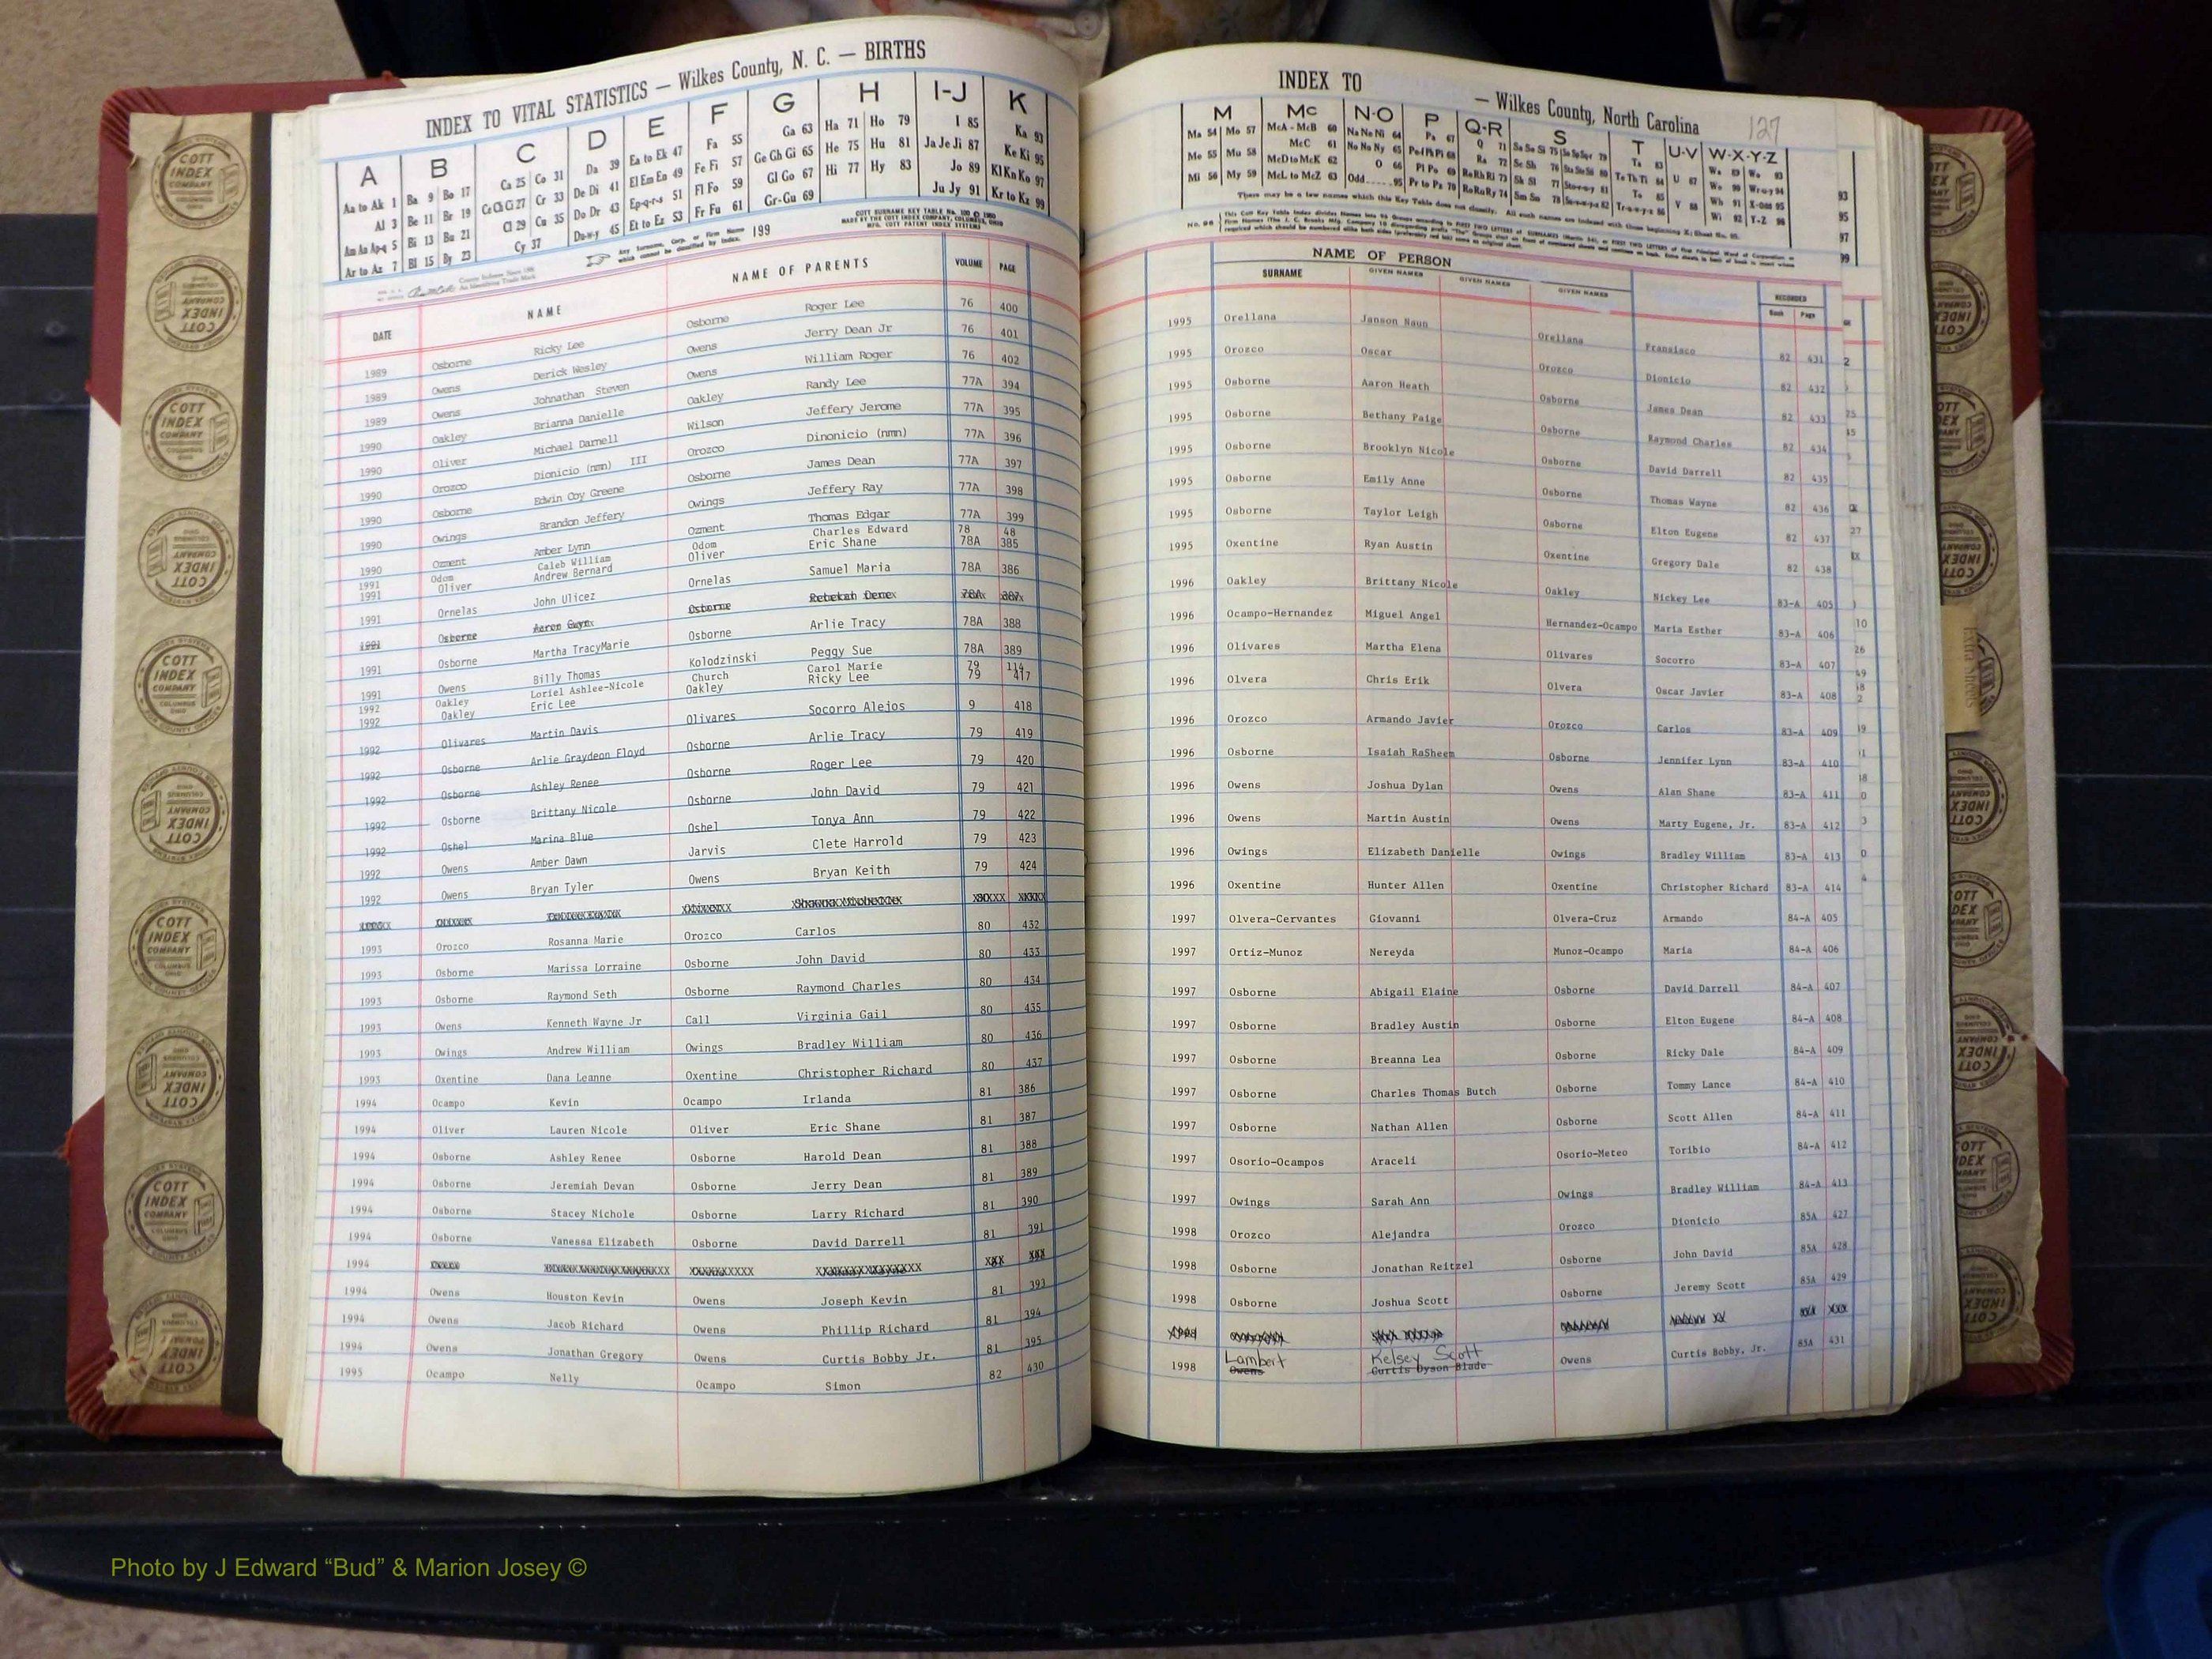 INDEX TO VITAL STATISTICS — Wilkes County, N. C. — BIRTHS
A B C D E F G H I-J K
Aa to Ak 1 Ba 9 Bo 17 Ca 25 Co 31 Da 39 Ea to Ek 47 Fa 55 Ga 63 Ha 71 Ho 79 I 85 Ka 93
Al 3 Be 11 Br 19 Ce Ch Ci 27 Cr 33 De Di 41 El Em En 49 Fe Fi 57 Ge Gh Gi 65 He 75 Hu 81 Ja Je Ji 87 Ke Ki 95
Am An Ap-q 5 Bi 13 Bu 21 Cl 29 Cu 35 Do Dr 43 Ep-q-r-s 51 Fl Fo 59 Gl Go 67 Hi 77 Hy 83 Jo 89 Kl Kn Ko 97
Ar to Az 7 Bl 15 By 23 Cy 37 Du-w-y 45 Et to Ez 53 Fr Fu 61 Gr-Gu 69 Ju Jy 91 Kr to Kz 99
Any Surname, Corp. or Firm Name which cannot be classified by index. 199
DATE NAME NAME OF PARENTS VOLUME PAGE
1989 Osborne Ricky Lee Osborne Roger Lee 76 400
1989 Owens Derick Wesley Owens Jerry Dean Jr 76 401
1989 Owens Johnathan Steven Owens William Roger 76 402
1990 Oakley Brianna Danielle Oakley Randy Lee 77A 394
1990 Oliver Michael Darnell Wilson Jeffery Jerome 77A 395
1990 Orozco Dionicio (nmn) III Orozco Dinonicio (nmn) 77A 396
1990 Osborne Edwin Coy Greene Osborne James Dean 77A 397
1990 Owings Brandon Jeffery Owings Jeffery Ray 77A 398
1990 Ozment Amber Lynn Ozment Thomas Edgar 77A 399
1991 Odom Caleb William Odom Charles Edward 78 48
1991 Oliver Andrew Bernard Oliver Eric Shane 78A 385
1991 Ornelas John Ulicez Ornelas Samuel Maria 78A 386
1991 Osborne Aaron Osborne Rebekah 78A 387
1991 Osborne Martha TracyMarie Osborne Arlie Tracy 78A 388
1991 Owens Billy Thomas Kolodzinski Peggy Sue 78A 389
1992 Oakley Loriel Ashlee-Nicole Church Carol Marie 79 114
1992 Oakley Eric Lee Oakley Ricky Lee 79 417
1992 Olivares Martin Davis Olivares Socorro Alejos 9 418
1992 Osborne Arlie Graydeon Floyd Osborne Arlie Tracy 79 419
1992 Osborne Ashley Renee Osborne Roger Lee 79 420
1992 Osborne Brittany Nicole Osborne John David 79 421
1992 Oshel Marina Blue Oshel Tonya Ann 79 422
1992 Owens Amber Dawn Jarvis Clete Harrold 79 423
1992 Owens Bryan Tyler Owens Bryan Keith 79 424
1993 Orozco Rosanna Marie Orozco Carlos 80 432
1993 Osborne Marissa Lorraine Osborne John David 80 433
1993 Osborne Raymond Seth Osborne Raymond Charles 80 434
1993 Owens Kenneth Wayne Jr Call Virginia Gail 80 435
1993 Owings Andrew William Owings Bradley William 80 436
1993 Oxentine Dana Leanne Oxentine Christopher Richard 80 437
1994 Ocampo Kevin Ocampo Irlanda 81 386
1994 Oliver Lauren Nicole Oliver Eric Shane 81 387
1994 Osborne Ashley Renee Osborne Harold Dean 81 388
1994 Osborne Jeremiah Devan Osborne Jerry Dean 81 389
1994 Osborne Stacey Nichole Osborne Larry Richard 81 390
1994 Osborne Vanessa Elizabeth Osborne David Darrell 81 391
1994
1994 Owens Houston Kevin Owens Joseph Kevin 81 393
1994 Owens Jacob Richard Owens Phillip Richard 81 394
1994 Owens Jonathan Gregory Owens Curtis Bobby Jr. 81 395
1995 Ocampo Nelly Ocampo Simon 82 430
INDEX TO — Wilkes County, North Carolina 127
M Mc N-O P Q-R S T U-V W-X-Y-Z
NAME OF PERSON
SURNAME GIVEN NAMES GIVEN NAMES GIVEN NAMES RECORDED
Book Page
1995 Orellana Janson Naun Orellana Fransisco 82 431
1995 Orozco Oscar Orozco Dionicio 82 432
1995 Osborne Aaron Heath Osborne James Dean 82 433
1995 Osborne Bethany Paige Osborne Raymond Charles 82 434
1995 Osborne Brooklyn Nicole Osborne David Darrell 82 435
1995 Osborne Emily Anne Osborne Thomas Wayne 82 436
1995 Osborne Taylor Leigh Osborne Elton Eugene 82 437
1995 Oxentine Ryan Austin Oxentine Gregory Dale 82 438
1996 Oakley Brittany Nicole Oakley Nickey Lee 83-A 405
1996 Ocampo-Hernandez Miguel Angel Hernandez-Ocampo Maria Esther 83-A 406
1996 Olivares Martha Elena Olivares Socorro 83-A 407
1996 Olvera Chris Erik Olvera Oscar Javier 83-A 408
1996 Orozco Armando Javier Orozco Carlos 83-A 409
1996 Osborne Isaiah RaSheem Osborne Jennifer Lynn 83-A 410
1996 Owens Joshua Dylan Owens Alan Shane 83-A 411
1996 Owens Martin Austin Owens Marty Eugene, Jr. 83-A 412
1996 Owings Elizabeth Danielle Owings Bradley William 83-A 413
1996 Oxentine Hunter Allen Oxentine Christopher Richard 83-A 414
1997 Olvera-Cervantes Giovanni Olvera-Cruz Armando 84-A 405
1997 Ortiz-Munoz Nereyda Munoz-Ocampo Maria 84-A 406
1997 Osborne Abigail Elaine Osborne David Darrell 84-A 407
1997 Osborne Bradley Austin Osborne Elton Eugene 84-A 408
1997 Osborne Breanna Lea Osborne Ricky Dale 84-A 409
1997 Osborne Charles Thomas Butch Osborne Tommy Lance 84-A 410
1997 Osborne Nathan Allen Osborne Scott Allen 84-A 411
1997 Osorio-Ocampos Araceli Osorio-Meteo Toribio 84-A 412
1997 Owings Sarah Ann Owings Bradley William 84-A 413
1998 Orozco Alejandra Orozco Dionicio 85A 427
1998 Osborne Jonathan Reitzel Osborne John David 85A 428
1998 Osborne Joshua Scott Osborne Jeremy Scott 85A 429
Lambert Kelsey Scott
1998 Owens Curtis Dyson Blade Owens Curtis Bobby, Jr. 85A 431
COTT INDEX COMPANY
Photo by J Edward “Bud” & Marion Josey ©